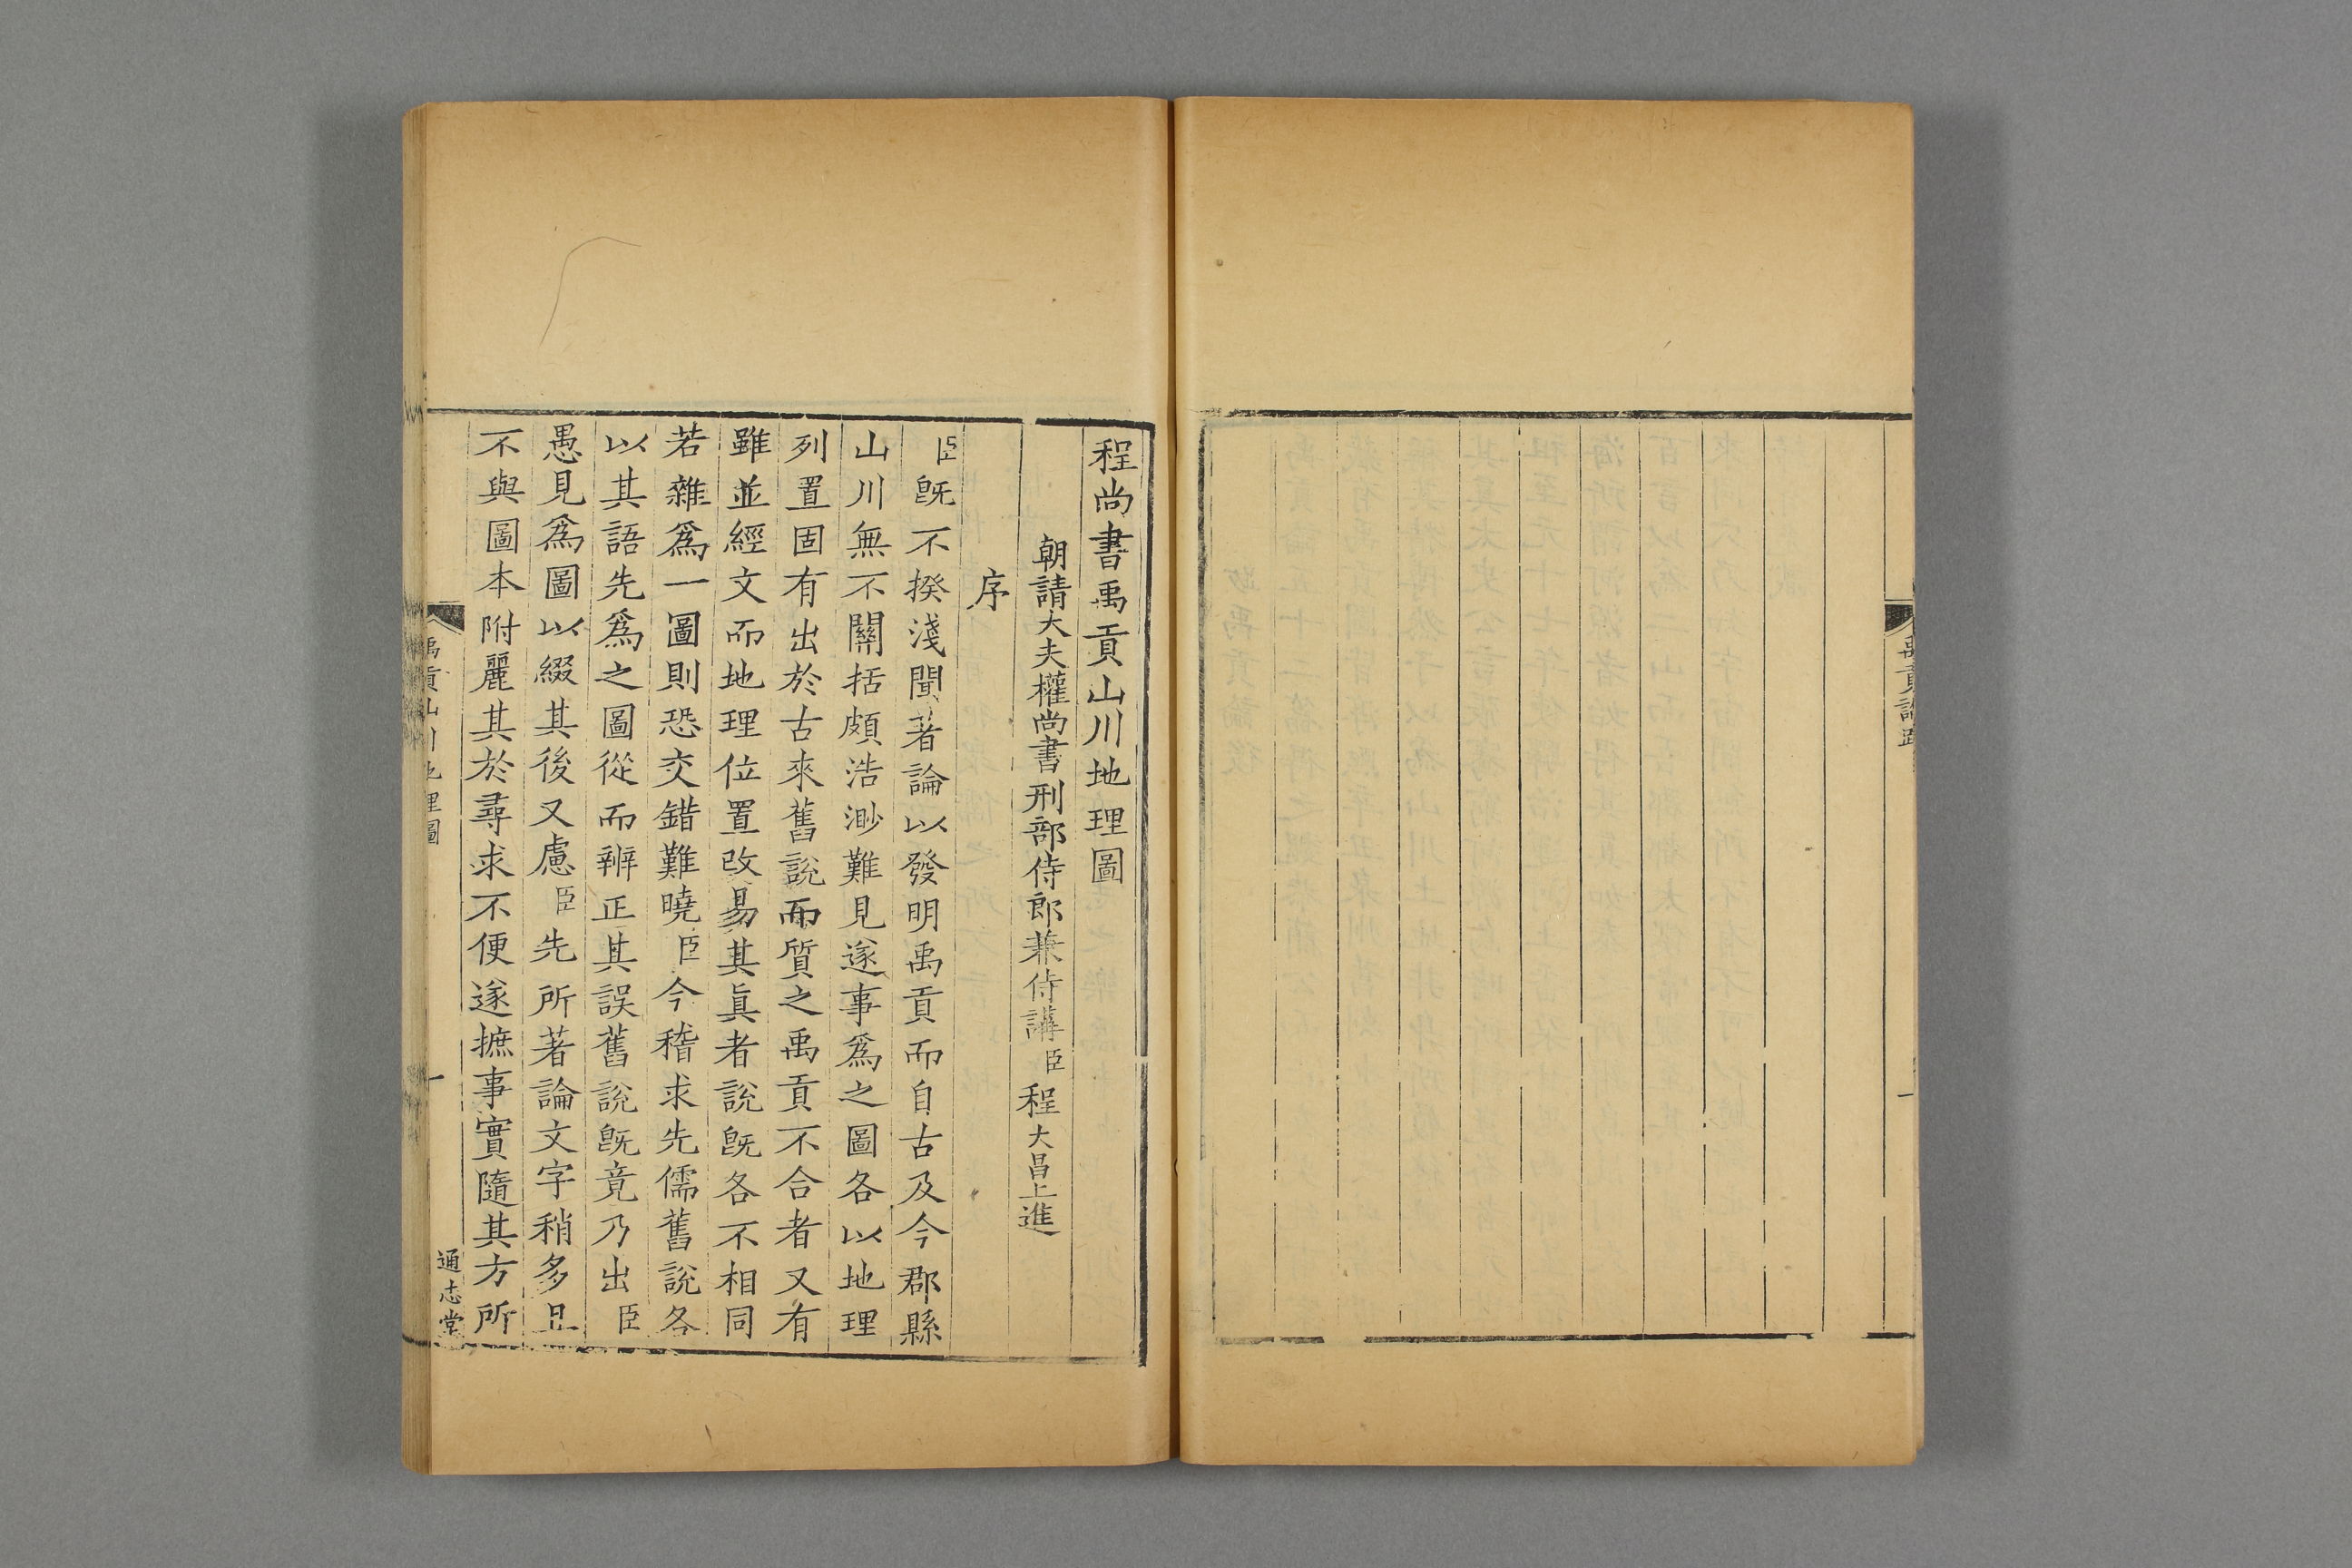 禹貢論跋
一
程尚書禹貢山川地理圖
朝請大夫權尚書刑部侍郎兼侍講臣程大昌上進
序
臣旣不揆淺聞著論以發明禹貢而自古及今郡縣
山川無不關括頗浩渺難見遂事爲之圖各以地理
列置固有出於古來舊說而質之禹貢不合者又有
雖並經文而地理位置改易其眞者說旣各不相同
若雜爲一圖則恐交錯難曉臣今稽求先儒舊說各
以其語先爲之圖從而辨正其誤舊說旣竟乃出臣
愚見爲圖以綴其後又慮臣先所著論文字稍多且
不與圖本附麗其於尋求不便遂摭事實隨其方所
禹貢山川地理圖
一
通志堂